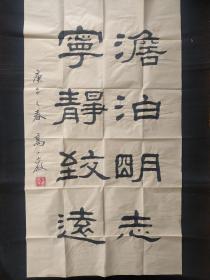 澹泊明志
寧靜致遠
庚子之春 高巖